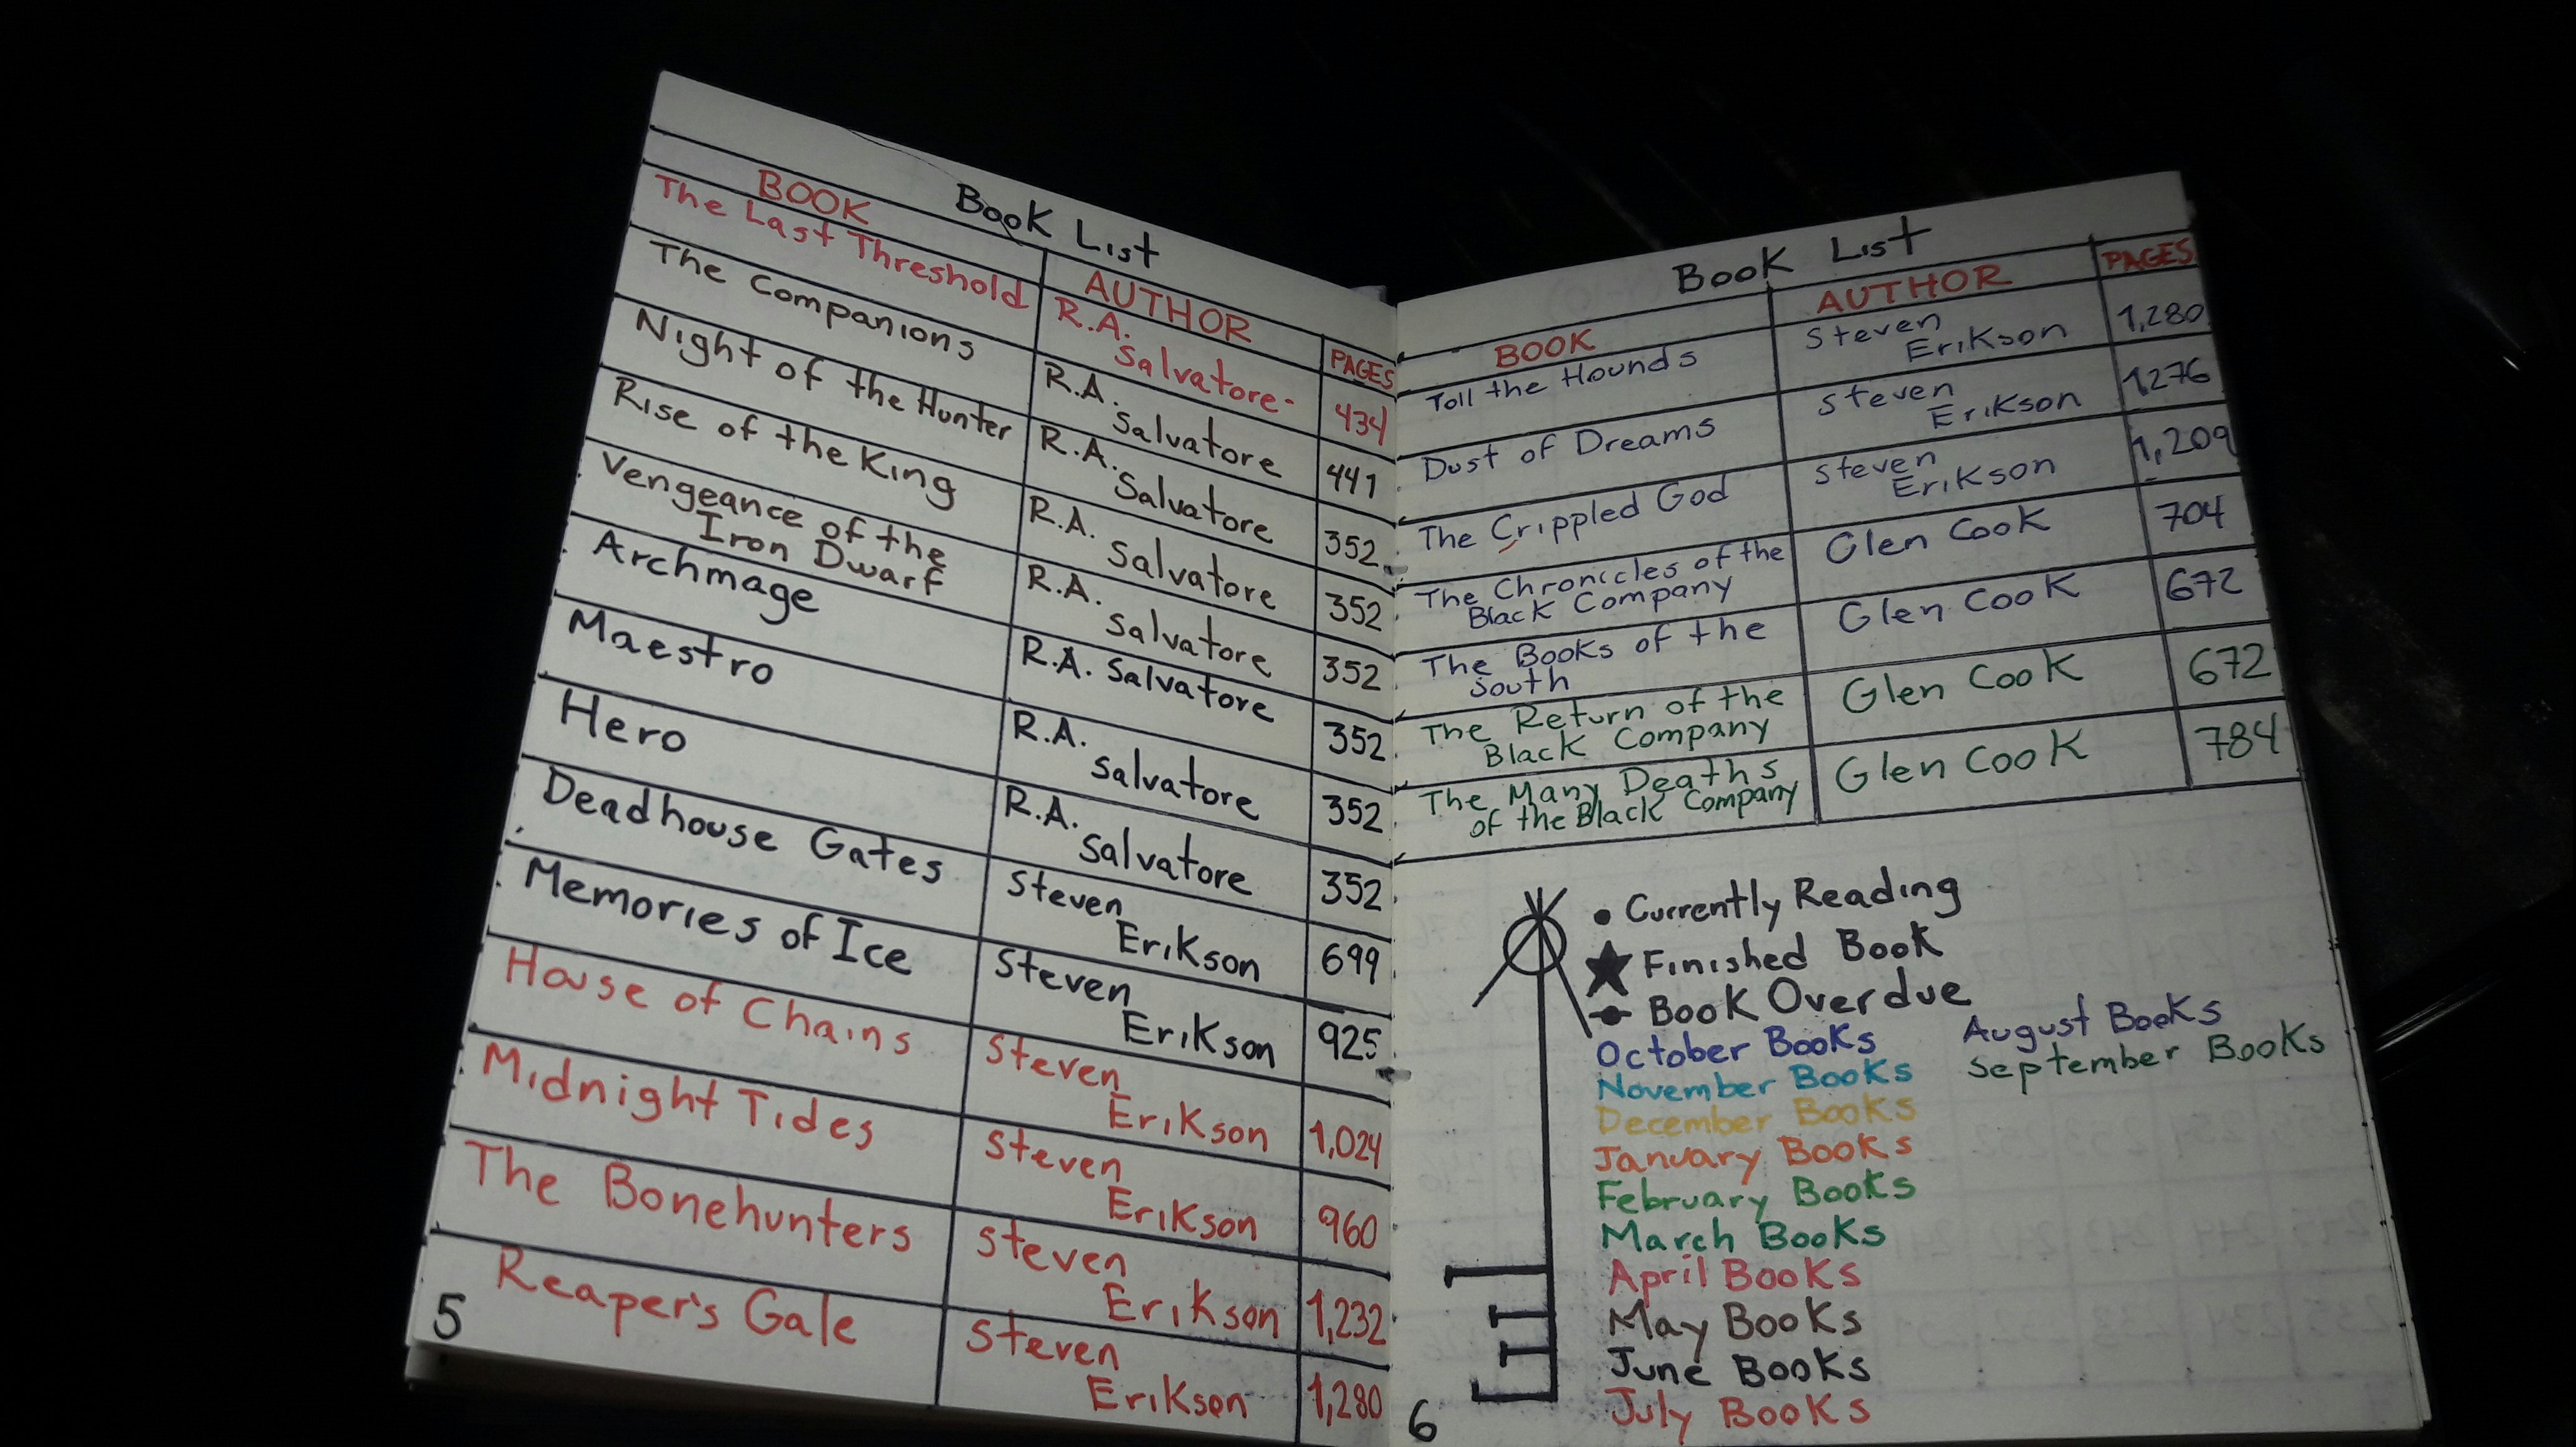 Book List
BOOK AUTHOR PAGES
The Last Threshold R.A. Salvatore 434
The Companions R.A. Salvatore 441
Night of the Hunter R.A. Salvatore 352
Rise of the King R.A. Salvatore 352
Vengeance of the Iron Dwarf R.A. Salvatore 352
Archmage R.A. Salvatore 352
Maestro R.A. Salvatore 352
Hero R.A. Salvatore 352
Deadhouse Gates Steven Erikson 699
Memories of Ice Steven Erikson 925
House of Chains Steven Erikson 1,024
Midnight Tides Steven Erikson 960
The Bonehunters Steven Erikson 1,232
Reaper's Gale Steven Erikson 1,280
5
Book List
BOOK AUTHOR PAGES
Toll the Hounds Steven Erikson 1,280
Dust of Dreams Steven Erikson 1,276
The Crippled God Steven Erikson 1,209
The Chronicles of the Black Company Glen Cook 704
The Books of the South Glen Cook 672
The Return of the Black Company Glen Cook 672
The Many Deaths of the Black Company Glen Cook 784
• Currently Reading
★ Finished Book
Book Overdue
October Books
November Books
December Books
January Books
February Books
March Books
April Books
May Books
June Books
July Books
August Books
September Books
6